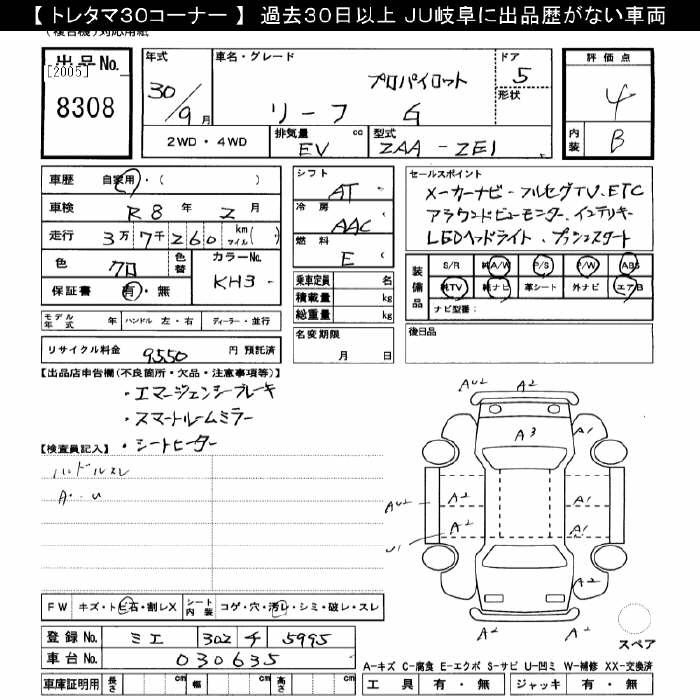 【 トレタマ30コーナー 】 過去30日以上 JU岐阜に出品歴がない車両
(複合機)対応用紙
出品No.
[2005]
8308
年式
30/9月
車名・グレード
プロパイロット
リーフ G
ドア
5
形状
評価点
4
内装
B
2WD・4WD
排気量 cc
EV
型式
ZAA-ZE1
車歴 自家用・( )
車検 R8年 2月
走行 3万7千260 km マイル( )
色 クロ
色替
カラーNo.
KH3
保証書 有・無
モデル年式 年 ハンドル 左・右 ディーラー・並行
リサイクル料金 9550 円 預託済
シフト
AT
冷房
AAC
燃料
E
乗車定員 名
積載量 kg
総重量 kg
名変期限
月 日
セールスポイント
メーカーナビ・フルセグTV.ETC
アラウンドビューモニター.インテリキー
LEDヘッドライト.プッシュスタート
装備品
S/R 純A/W P/S P/W ABS
純TV 純ナビ 革シート 外ナビ エアB
ナビ型番:
後日品
【出品店申告欄(不良箇所・欠品・注意事項等)】
・エマージェンシーブレーキ
・スマートルームミラー
・シートヒーター
【検査員記入】
ハンドルスレ
A・U
AU2 A2
A3 A1
AU2 A2 A1
A2 A1
U1
A2 A2
スペア
FW キズ・トビ石・割レX シート内装 コゲ・穴・汚レ・シミ・破レ・スレ
登録No. ミエ 302 チ 5995
車台No. 030635
車庫証明用 長さ cm 幅 cm 高さ cm
A-キズ C-腐食 E-エクボ S-サビ U-凹ミ W-補修 XX-交換済
工具 有・無 ジャッキ 有・無